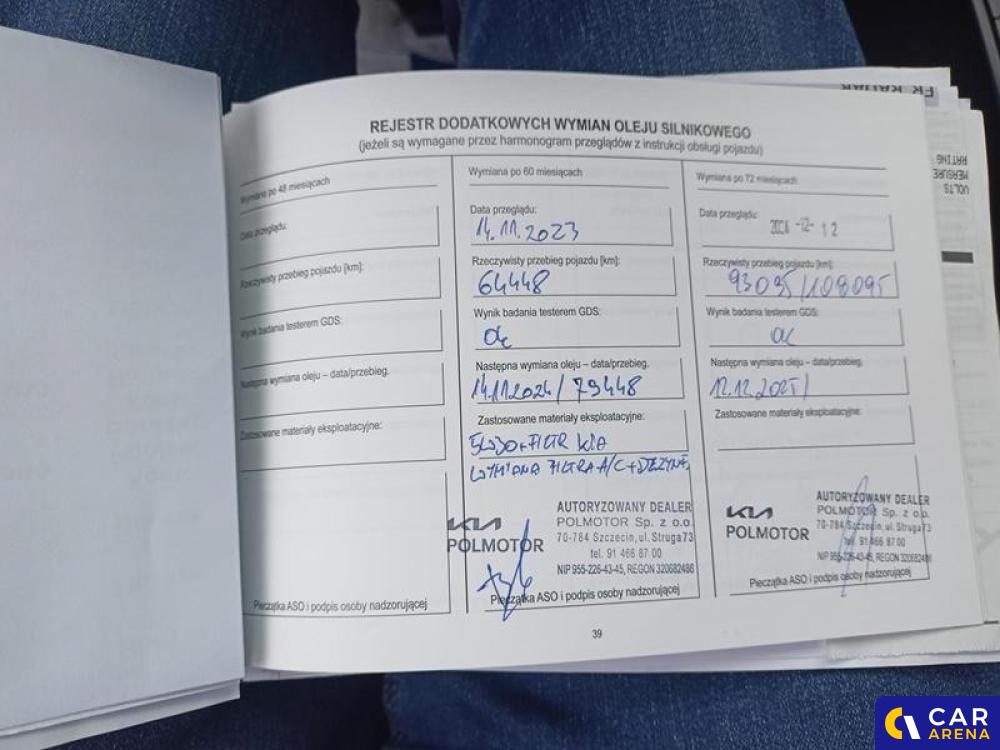 REJESTR DODATKOWYCH WYMIAN OLEJU SILNIKOWEGO
(jeżeli są wymagane przez harmonogram przeglądów z instrukcji obsługi pojazdu)
Wymiana po 48 miesiącach
Data przeglądu:
Rzeczywisty przebieg pojazdu [km]:
Wynik badania testerem GDS:
Następna wymiana oleju – data/przebieg.
Zastosowane materiały eksploatacyjne:
Pieczątka ASO i podpis osoby nadzorującej
Wymiana po 60 miesiącach
Data przeglądu:
14.11.2023
Rzeczywisty przebieg pojazdu [km]:
64448
Wynik badania testerem GDS:
Ok
Następna wymiana oleju – data/przebieg.
14.11.2024 / 79448
Zastosowane materiały eksploatacyjne:
5W30+FILTR KIA
WYMIANA FILTRA A/C +
KIA
POLMOTOR
AUTORYZOWANY DEALER
POLMOTOR Sp. z o.o.
70-784 Szczecin, ul. Struga 73
tel. 91 466 87 00
NIP 955-226-43-45, REGON 320682486
Pieczątka ASO i podpis osoby nadzorującej
Wymiana po 72 miesiącach
Data przeglądu:
2024 -12- 12
Rzeczywisty przebieg pojazdu [km]:
93095/108095
Wynik badania testerem GDS:
ok
Następna wymiana oleju – data/przebieg.
12.12.2025/
Zastosowane materiały eksploatacyjne:
KIA
POLMOTOR
AUTORYZOWANY DEALER
POLMOTOR Sp. z o.o.
70-784 Szczecin, ul. Struga 73
tel. 91 466 87 00
NIP 955-226-43-45, REGON 320682486
Pieczątka ASO i podpis osoby nadzorującej
39
VOLTS
MEASURE
RATING
CAR
ARENA